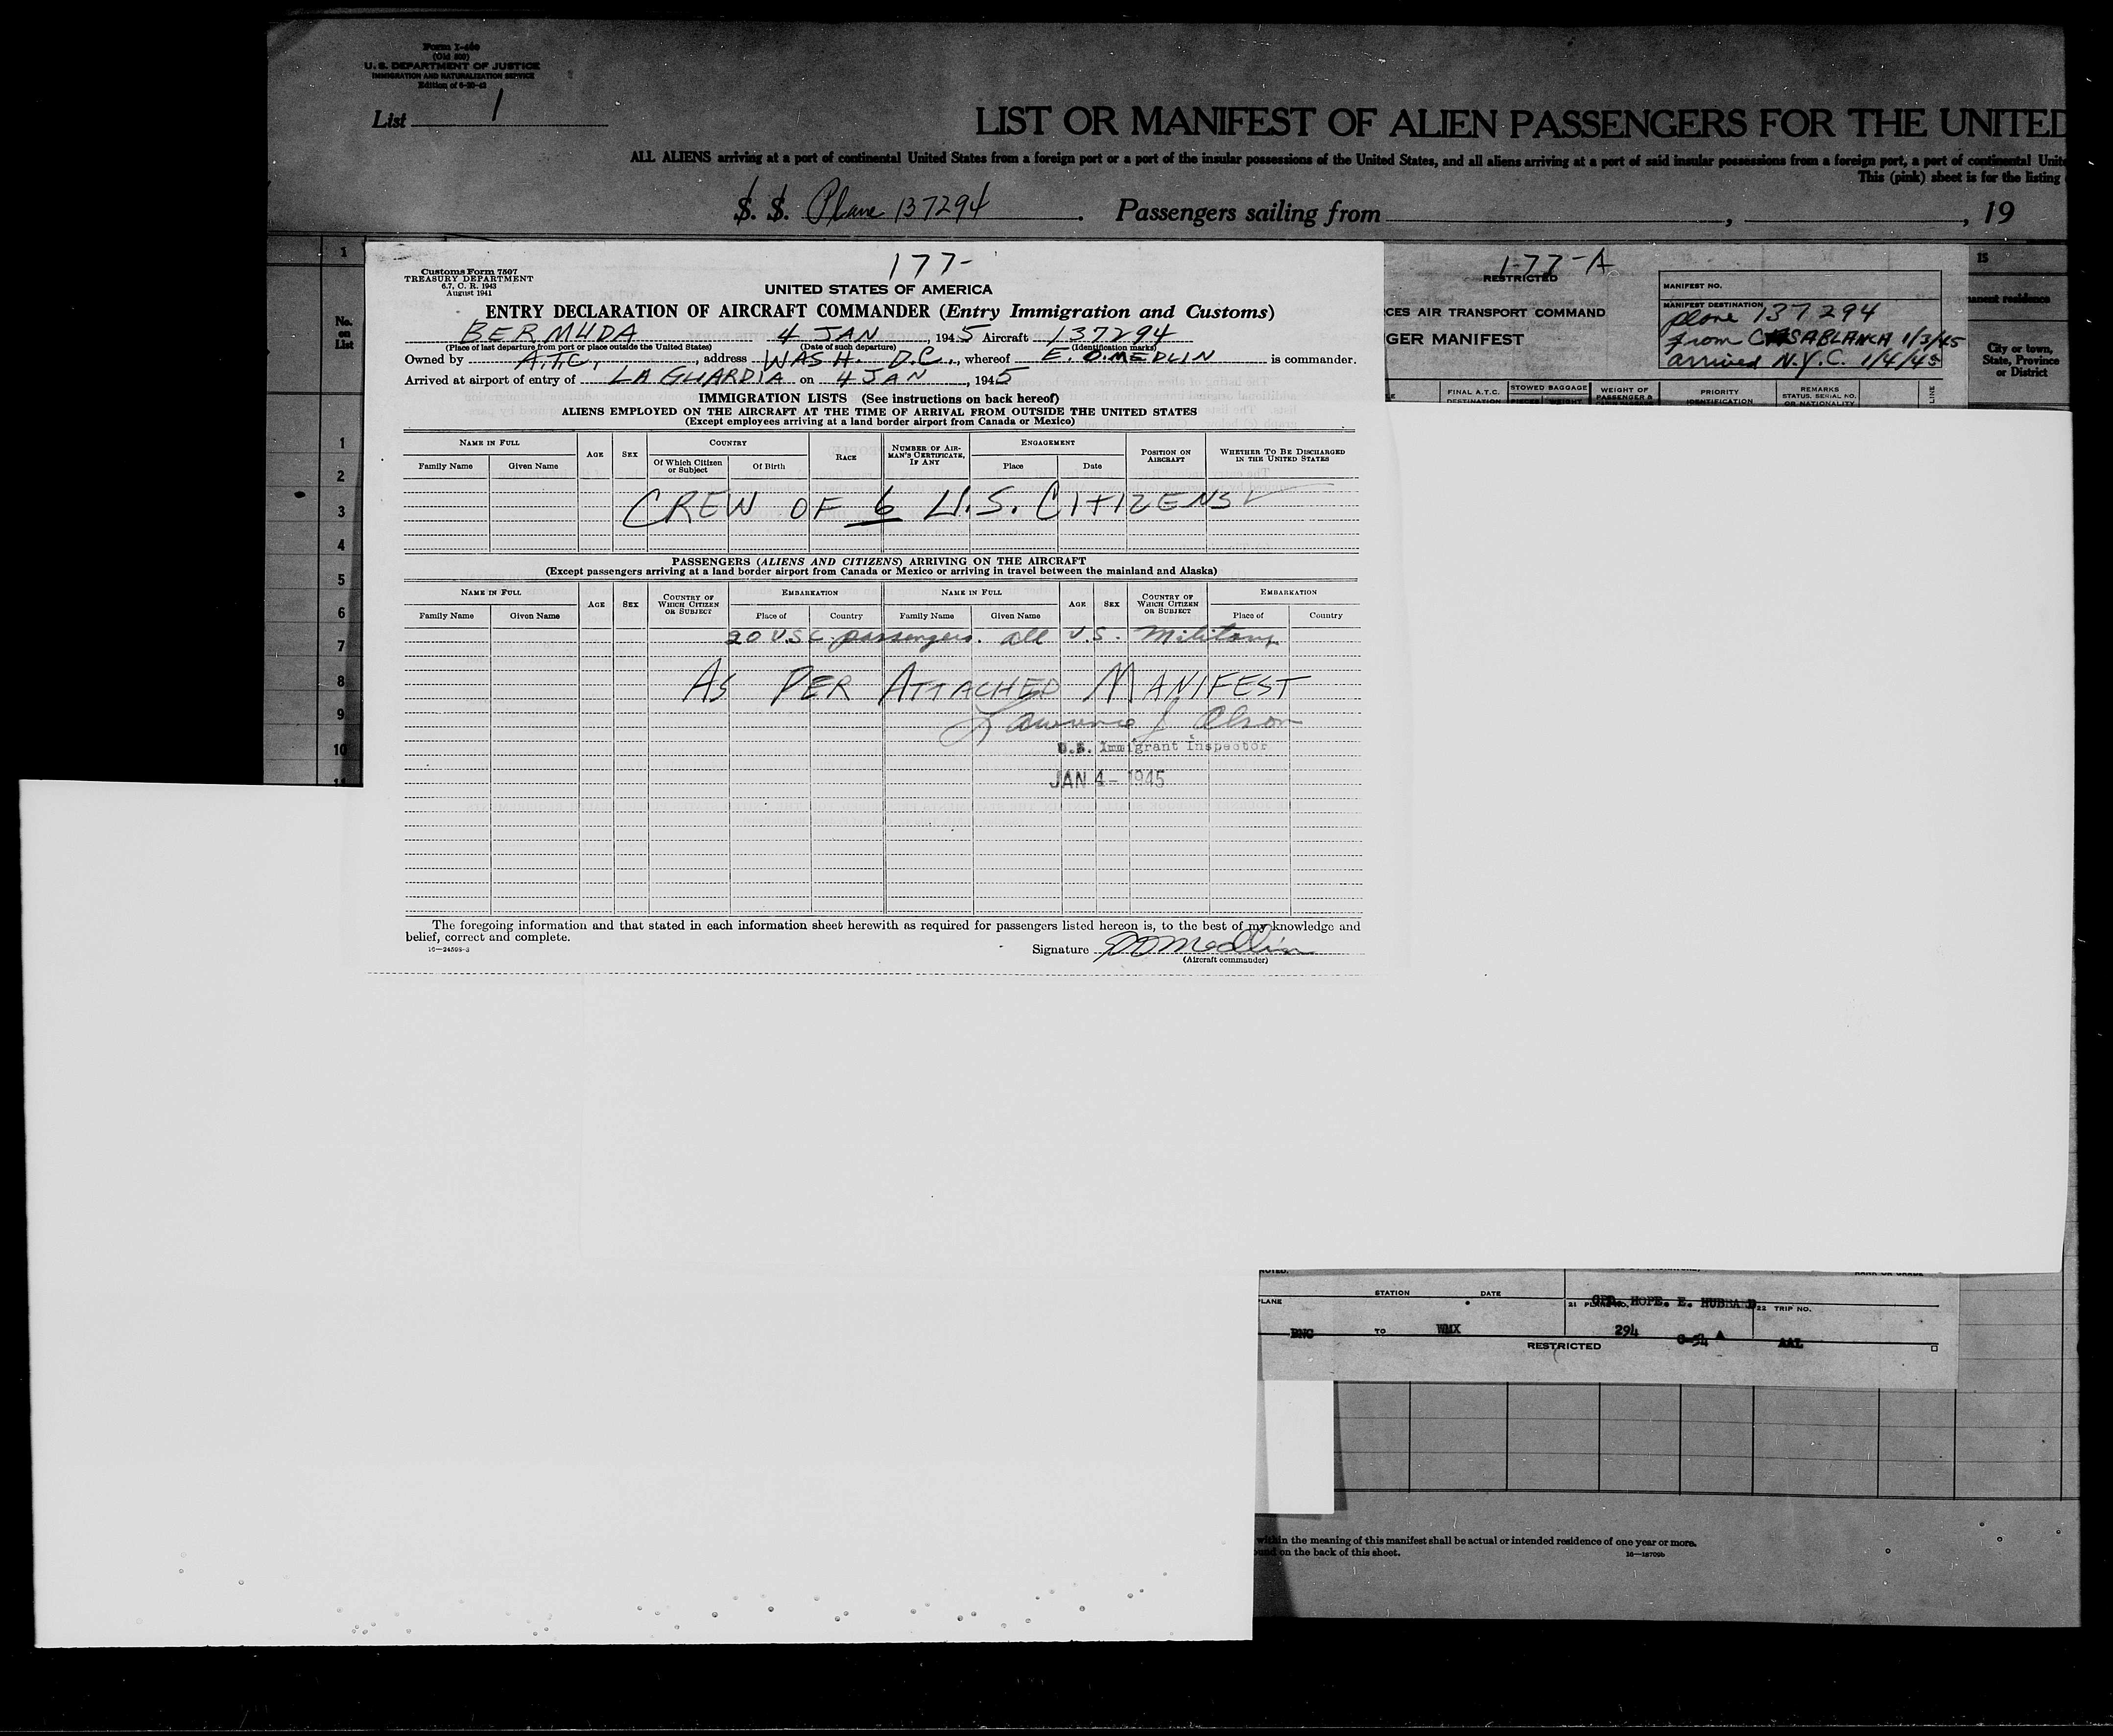 Form I-460
(Old 500)
U. S. DEPARTMENT OF JUSTICE
IMMIGRATION AND NATURALIZATION SERVICE
List 1
LIST OR MANIFEST OF ALIEN PASSENGERS FOR THE UNITED
ALL ALIENS arriving at a port of continental United States from a foreign port or a port of the insular possessions of the United States, and all aliens arriving at a port of said insular possessions from a foreign port, a port of continental Unite
This (pink) sheet is for the listing
S. S. Plane 137294 . Passengers sailing from , , 19
177-
Customs Form 7507
TREASURY DEPARTMENT
6.7, C. R. 1943
August 1941
UNITED STATES OF AMERICA
ENTRY DECLARATION OF AIRCRAFT COMMANDER (Entry Immigration and Customs)
BERMUDA 4 JAN , 1945 Aircraft 137294
(Place of last departure from port or place outside the United States) (Date of such departure) (Identification marks)
Owned by A.T.C., , address WASH. D.C. , whereof E. O. MEDLIN is commander.
Arrived at airport of entry of LA GUARDIA on 4 JAN , 1945
IMMIGRATION LISTS (See instructions on back hereof)
ALIENS EMPLOYED ON THE AIRCRAFT AT THE TIME OF ARRIVAL FROM OUTSIDE THE UNITED STATES
(Except employees arriving at a land border airport from Canada or Mexico)
NAME IN FULL AGE SEX COUNTRY RACE NUMBER OF AIRMAN'S CERTIFICATE, IF ANY ENGAGEMENT POSITION ON AIRCRAFT WHETHER TO BE DISCHARGED IN THE UNITED STATES
Family Name Given Name Of Which Citizen or Subject Of Birth Place Date
CREW OF 6 U.S. CITIZENS
PASSENGERS (ALIENS AND CITIZENS) ARRIVING ON THE AIRCRAFT
(Except passengers arriving at a land border airport from Canada or Mexico or arriving in travel between the mainland and Alaska)
NAME IN FULL AGE SEX COUNTRY OF WHICH CITIZEN OR SUBJECT EMBARKATION NAME IN FULL AGE SEX COUNTRY OF WHICH CITIZEN OR SUBJECT EMBARKATION
Family Name Given Name Place of Country Family Name Given Name Place of Country
20 U.S.C. passengers. all U.S. Military
AS PER ATTACHED MANIFEST
Lawrence J Olson
U.S. Immigrant Inspector
JAN 4 - 1945
The foregoing information and that stated in each information sheet herewith as required for passengers listed hereon is, to the best of my knowledge and
belief, correct and complete.
16—24595-3
Signature E O Medlin
(Aircraft commander)
177-A
RESTRICTED
CES AIR TRANSPORT COMMAND
GER MANIFEST
MANIFEST NO.
MANIFEST DESTINATION
plane 137294
from CASABLANCA 1/3/45
arrived N.Y.C. 1/4/45
FINAL A.T.C. DESTINATION STOWED BAGGAGE PIECES WEIGHT WEIGHT OF PASSENGER & PRIORITY IDENTIFICATION REMARKS STATUS, SERIAL NO. OR NATIONALITY LINE
15
anent residence
City or town,
State, Province
or District
No.
on
List
1
1
2
3
4
5
6
7
8
9
10
11
RANK OR GRADE
PLANE STATION DATE 21 PLANE NO. CPL. HOPE. E. HUBBARD 22 TRIP NO.
BNC TO WMX 294 C-54 A AAL
RESTRICTED
within the meaning of this manifest shall be actual or intended residence of one year or more.
ound on the back of this sheet.
16—18709b